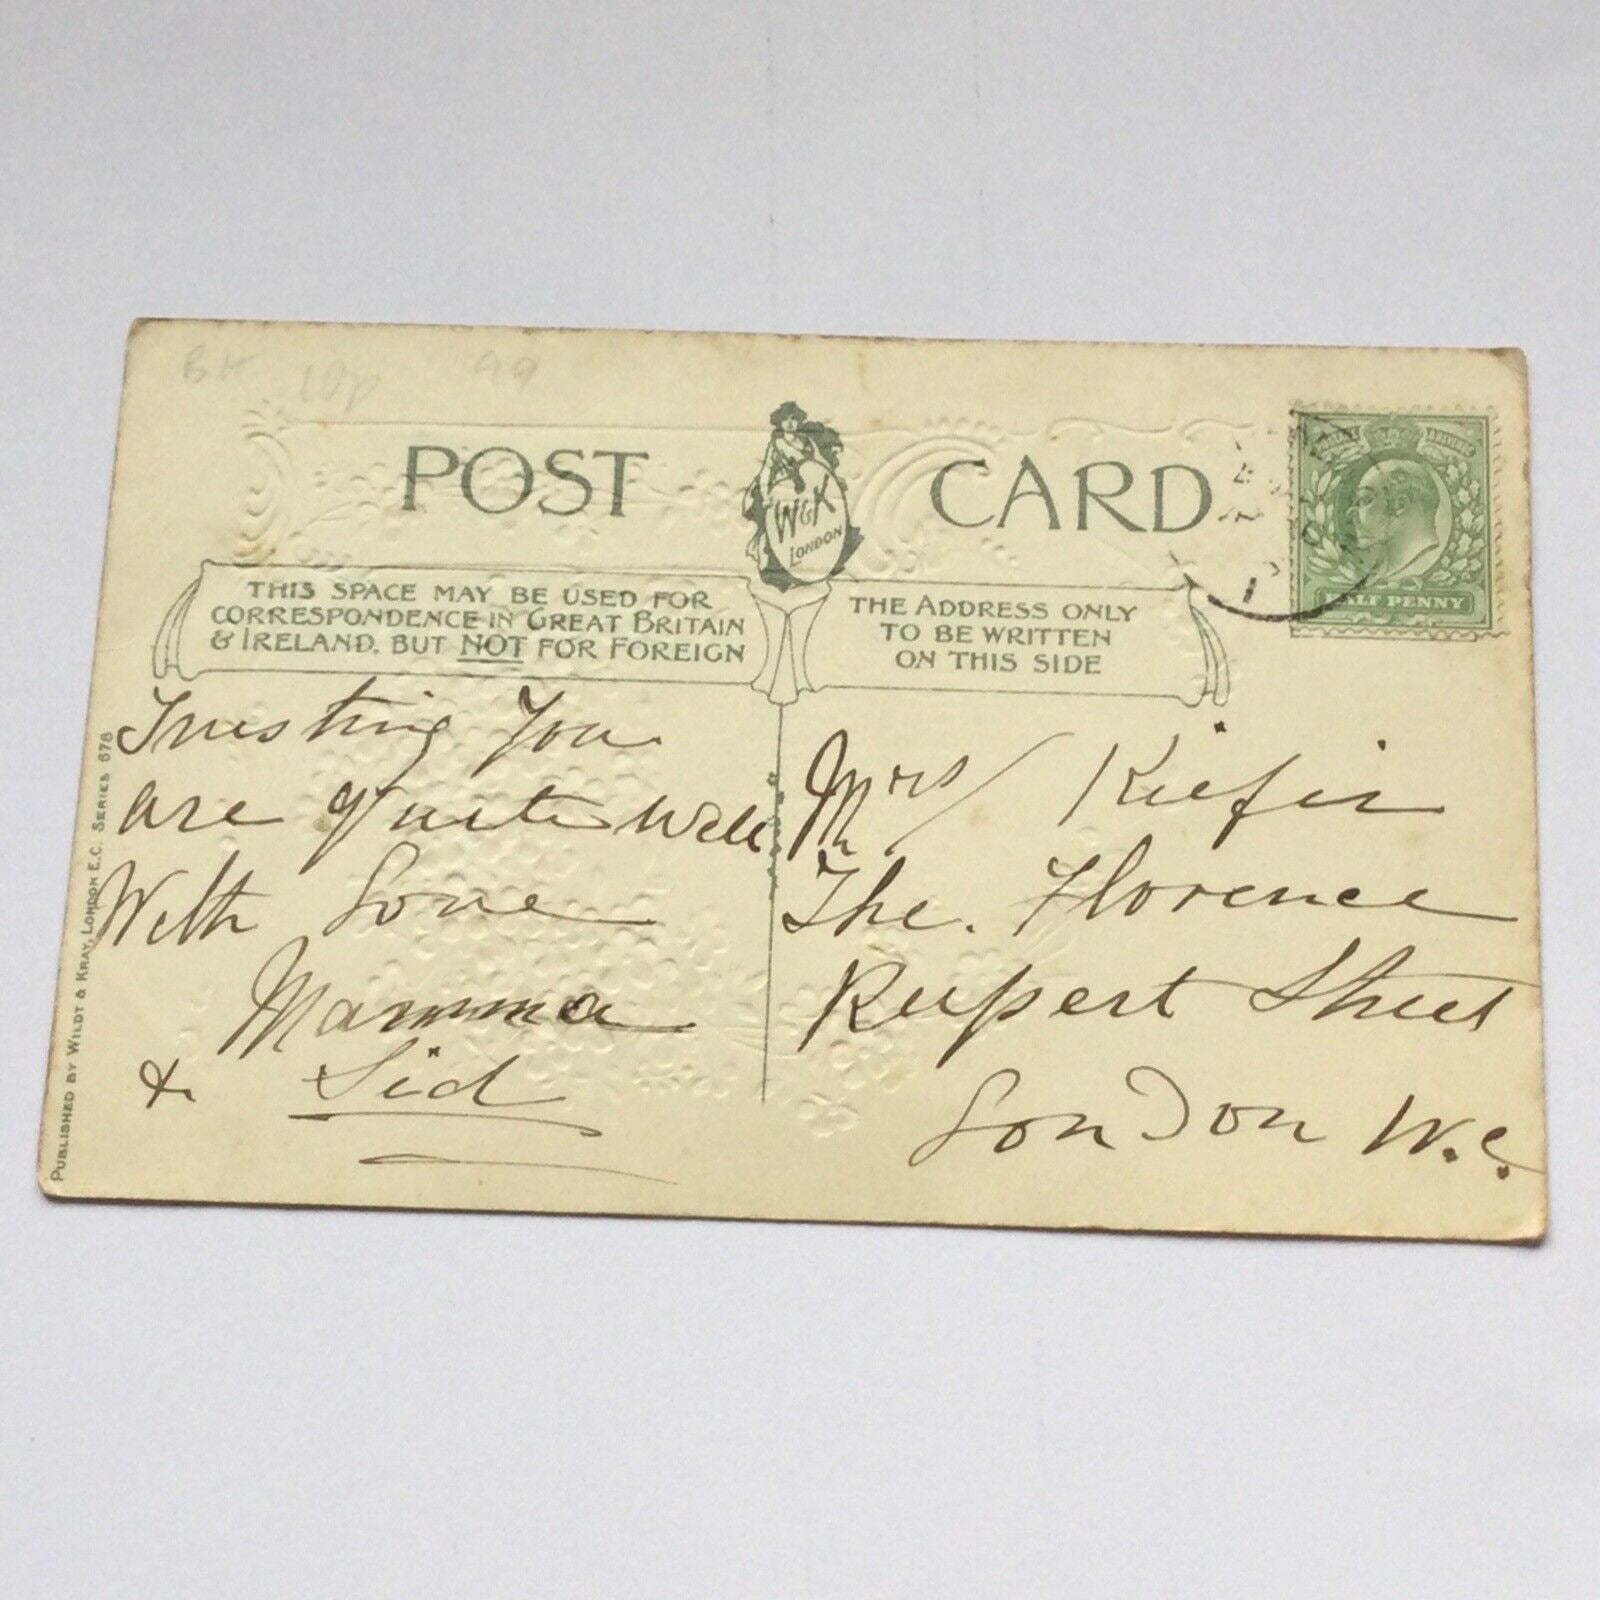 BH 10p 99
POST CARD
W&K
LONDON
THIS SPACE MAY BE USED FOR
CORRESPONDENCE IN GREAT BRITAIN
& IRELAND, BUT NOT FOR FOREIGN
THE ADDRESS ONLY
TO BE WRITTEN
ON THIS SIDE
HALF PENNY
PUBLISHED BY WILDT & KRAY, LONDON E.C. SERIES 678
Trusting You
are Quite Well
With Love
Mamma
& Sid
Mrs/
The Florence
Rupert Street
London W.C.